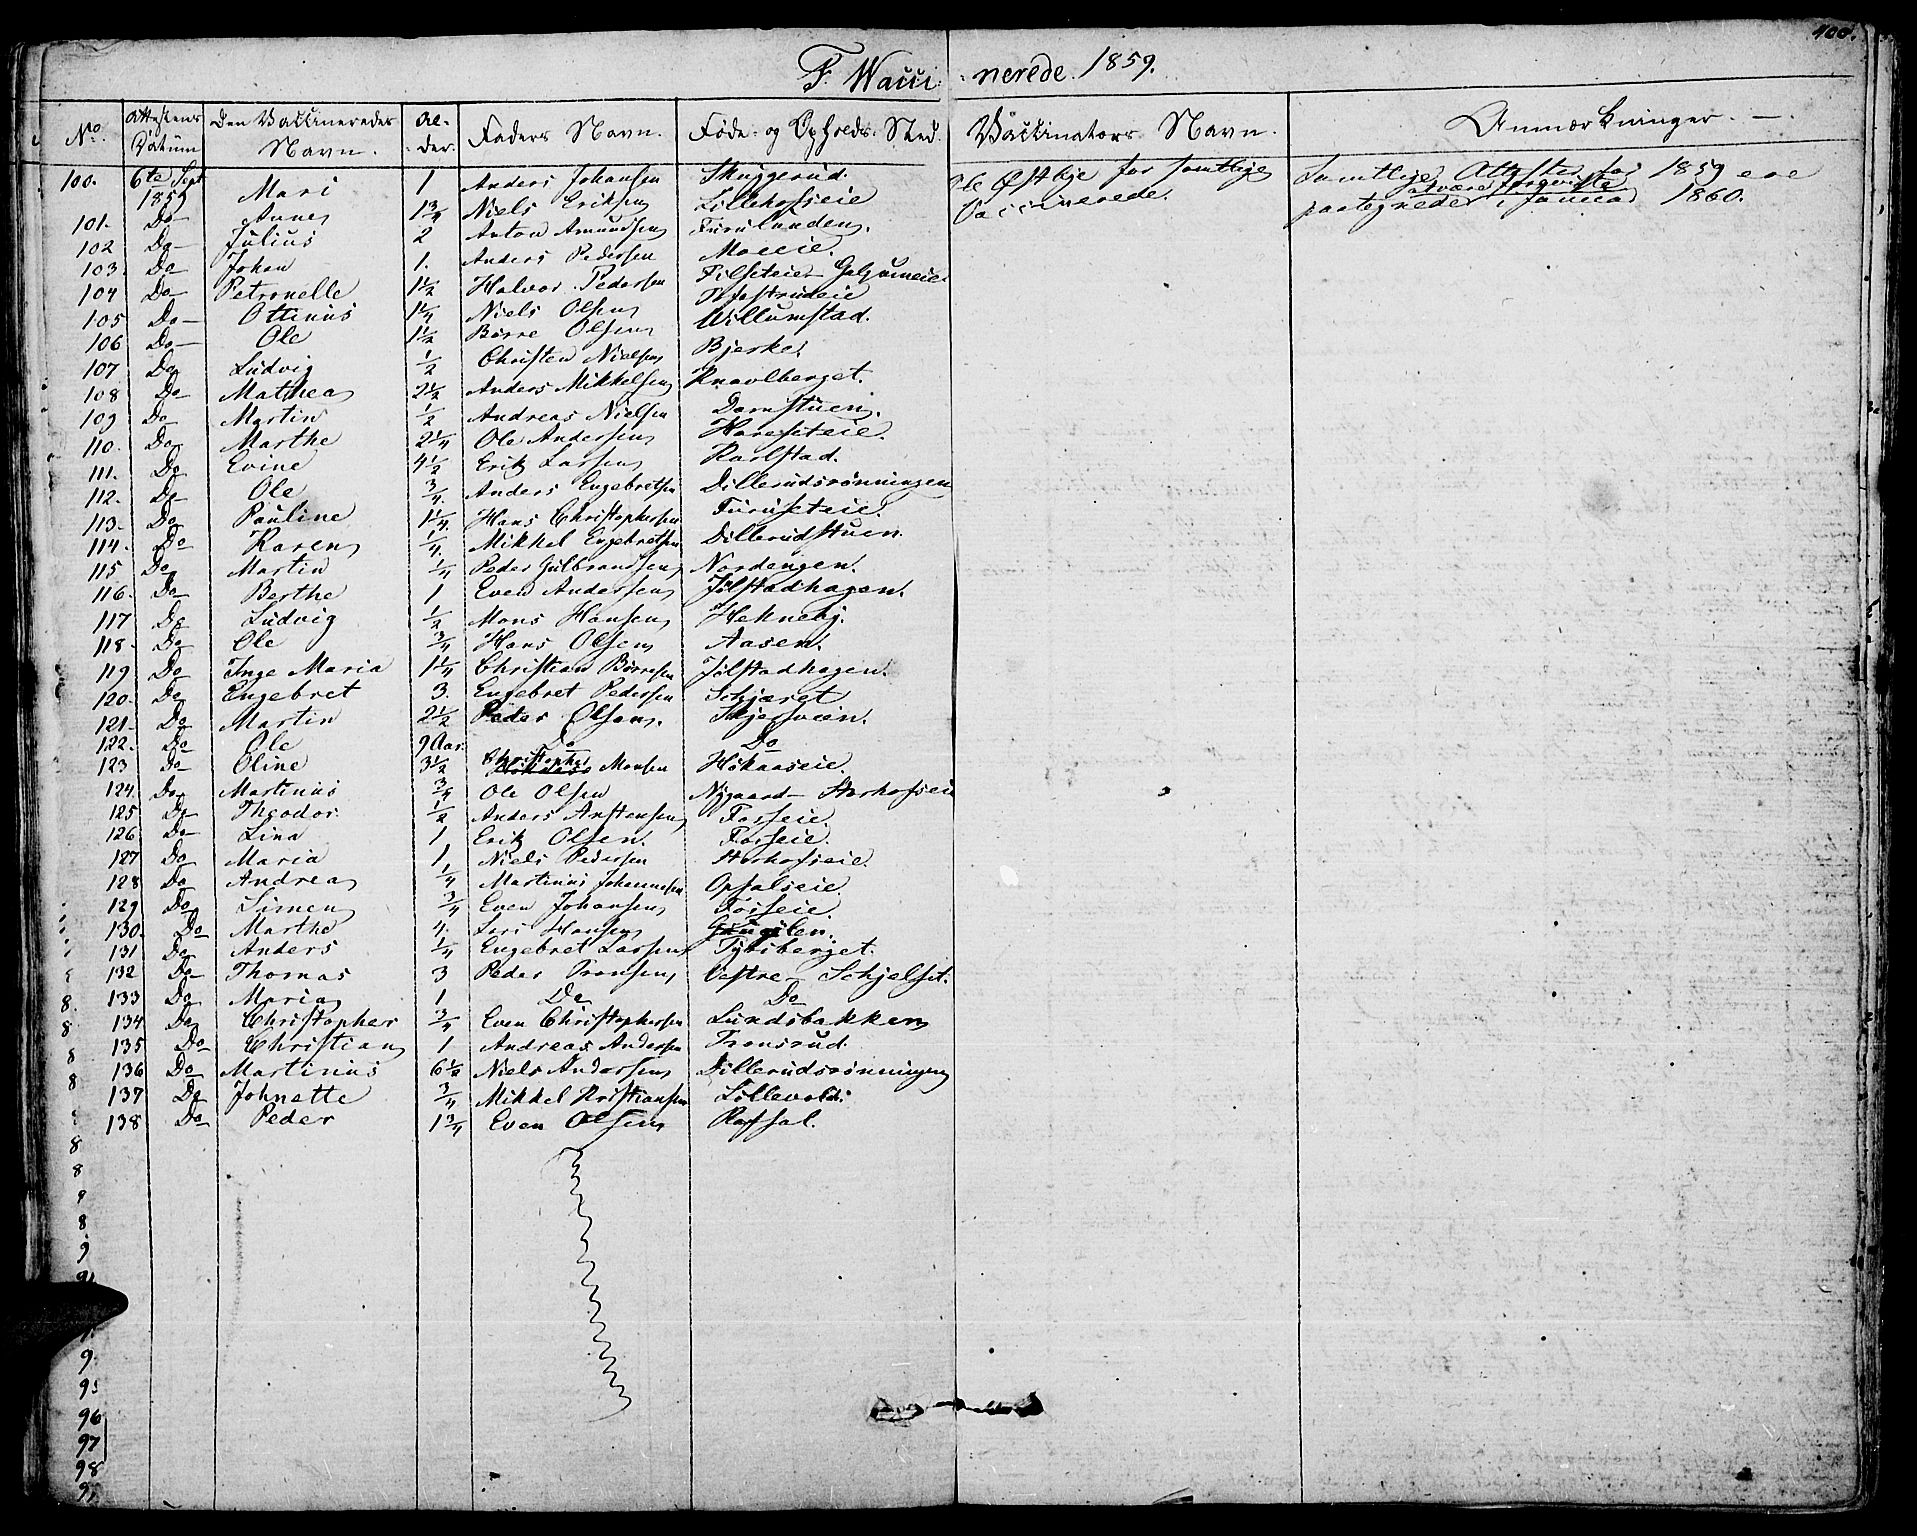 100.
F. Wacci- nerede. 1859.
No. Attestens Datum Den Vaccineredes Navn. Al- der. Faders Navn. Føde- og Opholds- Sted. Vaccinators Navn. Anmærkninger.
100. 6te Sept 1859 Mari 1 Anders Johansen Skuggerud. Ole Østbye for samtlige Vaccinerede. Samtlige Attester for 1859 ere
101. Do Anne 1 3/4 Niels Eriksen Lillehofseie
paategnede i Januar 1860.
102 Do Julius 2 Anton Amundsen Furulunden.
103. Do Johan 1. Anders Pedersen Moeeie.
104 Do Petronelle 1 1/2 Halvor Pedersen
105 Do Ottinus 1 1/4 Niels Olsen
106 Do Ole 1 1/2 Børre Olsen Willumstad.
107 Do Ludvig 1/2 Christen Nielsen Bjerke.
108 Do Mathea 2 1/2 Anders Mikkelsen Knavlberget.
109 Do Martin 1/2 Andreas Nielsen Damstuen.
110. Do Marthe 2 1/4 Ole Andersen Harseteie.
111. Do Evine 4 1/2 Erik Larsen Karlstad.
112. Do Ole 3/4. Anders Engebretsen Dillerudsrønningen
113. Do Pauline 1 1/4. Hans Christophersen Furuseteie.
114. Do Karen 1/4. Mikkel Engebretsen Dillerudstuen.
115 Do Martin 1/4 Peder Gulbrandsen Nordengen.
116. Do Berthe 1 Even Andersen Jølstadhagen.
117 Do Ludvig 1/2 Mons Hansen Hekneby.
118. Do Ole 3/4 Hans Olsen Aasen.
119 Do Inge Maria 1 1/4 Christian Børresen Jølstadhagen.
120. Do Engebret 3. Engebret Pedersen Schjæret
121. Do Martin 2 1/2 Peder Olsen. Skjersveen.
122. Do Ole 9 Aar. Do Do
123 Do Oline 3 1/2 Christopher Monsen Høkaaseie.
124. Do Martinus 3/4 Ole Olsen Nygaard Storhofseie
125 Do Theodor 1/2 Anders Anstensen Forseie.
126 Do Lina 1 Erik Olsen. Forseie.
127 Do Maria 1 Niels Pedersen Storhofseie.
128 Do Andrea 1/4 Martinus Johannesen Opsalseie.
129 Do Simen 3/4 Even Johansen Forseie.
130. Do Marthe 4. Lars Hansen
131 Do Anders 1/4 Engebret Larsen Tyksberget.
132 Do Thomas 3 Peder Tronsen Vestre Schjelset.
133 Do Maria 1 Do Do
134 Do Christopher 3/4 Even Christophersen Lundsbakken
135 Do Christian 1 Andreas Andersen Tronsrud.
136 Do Martinus 6 1/2 Niels Andersen Dillerudsrønningen
137 Do Johnette 3/4 Mikkel Kristiansen Lillevold
138 Do Peder 1 3/4 Even Olsen Rafsal.
96
97
98